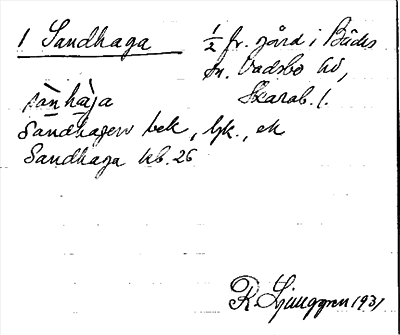 1 Sandhaga
1/2 fr. gård i Bäcks
sn. Vadsbo hd,
Skarab. l.
sànhàja
Sandhagen bek, ljk., ek
Sandhaga kb. 26
R. Ljunggren 1931